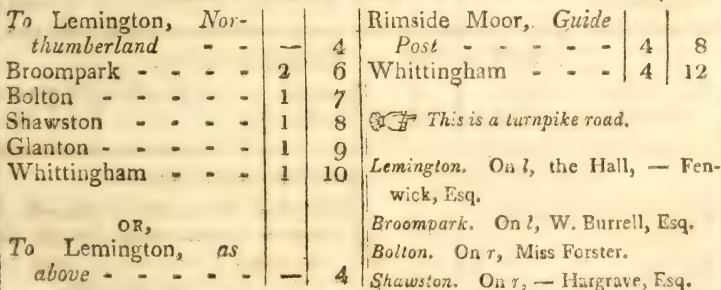 To Lemington, Nor-
thumberland - - — 4
Broompark - - - - 2 6
Bolton - - - - - 1 7
Shawston - - - - 1 8
Glanton - - - - - 1 9
Whittingham - - - 1 10
OR,
To Lemington, as
above - - - - - — 4
Rimside Moor, Guide
Post - - - - - 4 8
Whittingham - - - 4 12
☞ This is a turnpike road.
Lemington. On l, the Hall, — Fen-
wick, Esq.
Broompark. On l, W. Burrell, Esq.
Bolton. On r, Miss Forster.
Shawston. On r, — Hargrave, Esq.